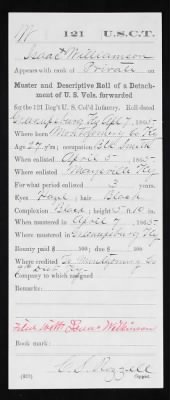 W 121 U.S.C.T.
Isaac Williamson
Appears with rank of Private on
Muster and Descriptive Roll of a Detach-
ment of U. S. Vols. forwarded
for the 121 Reg't U. S. Col'd Infantry. Roll dated
Ky Apl 7, 1865
Where born Montgomery Co Ky
Age 27 y'rs; occupation Bl'k Smith
When enlisted April 5, 1865
Where enlisted Maysville Ky
For what period enlisted 3 years.
Eyes ; hair Black
Complexion Black; height 5 ft. in.
When mustered in April 7, 1865
Where mustered in Ky
Bounty paid $ 100; due $ 100
Where credited Montgomery Co
9th Dist Ky.
Company to which assigned
Remarks:
Filed with Isaac Wilkinson
Book mark:
(339) Copyist.